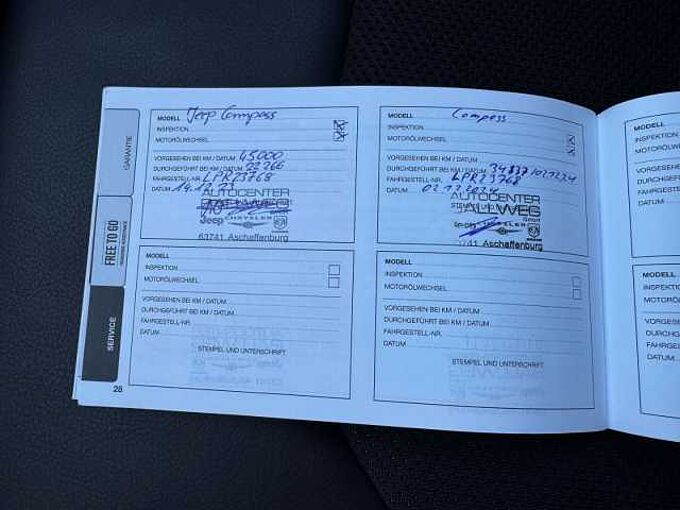 GARANTIE
FREE TO GO
SERVICE
28
MODELL Jeep Compass
INSPEKTION
MOTORÖLWECHSEL
VORGESEHEN BEI KM / DATUM 45000
DURCHGEFÜHRT BEI KM / DATUM 22266
FAHRGESTELL-NR. LPR23768
DATUM 14.12.23
AUTOCENTER
Jeep CHRYSLER
63741 Aschaffenburg
MODELL Compass
INSPEKTION
MOTORÖLWECHSEL
VORGESEHEN BEI KM / DATUM
DURCHGEFÜHRT BEI KM / DATUM 34837
FAHRGESTELL-NR. LPR23768
DATUM 02.12.2024
AUTOCENTER
ALLWEG
GmbH
741 Aschaffenburg
MODELL
INSPEKTION
MOTORÖLWECHSEL
VORGESEHEN BEI KM / DATUM
DURCHGEFÜHRT BEI KM / DATUM
FAHRGESTELL-NR.
DATUM
STEMPEL UND UNTERSCHRIFT
MODELL
INSPEKTION
MOTORÖLWECHSEL
VORGESEHEN BEI KM / DATUM
DURCHGEFÜHRT BEI KM / DATUM
FAHRGESTELL-NR.
DATUM
STEMPEL UND UNTERSCHRIFT
MODELL
INSPEKTION
MOTORÖLWE
VORGESEHE
DURCHGEFÜ
FAHRGESTEL
DATUM
MODELL
INSPEKTIO
MOTORÖL
VORGESE
DURCHGE
FAHRGES
DATUM